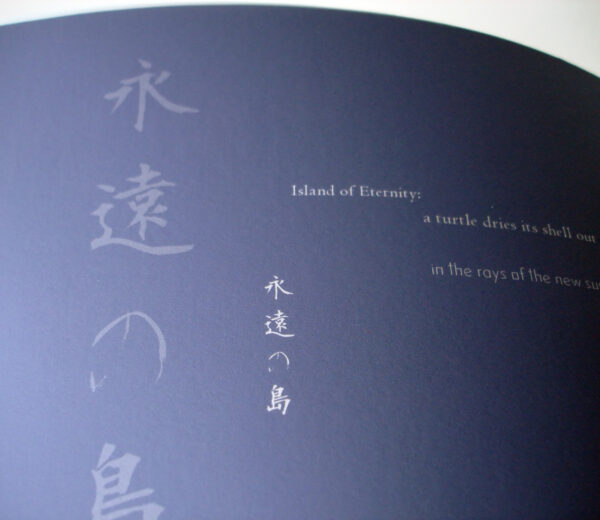 永遠の島
Island of Eternity:
a turtle dries its shell out
in the rays of the new
永遠の島